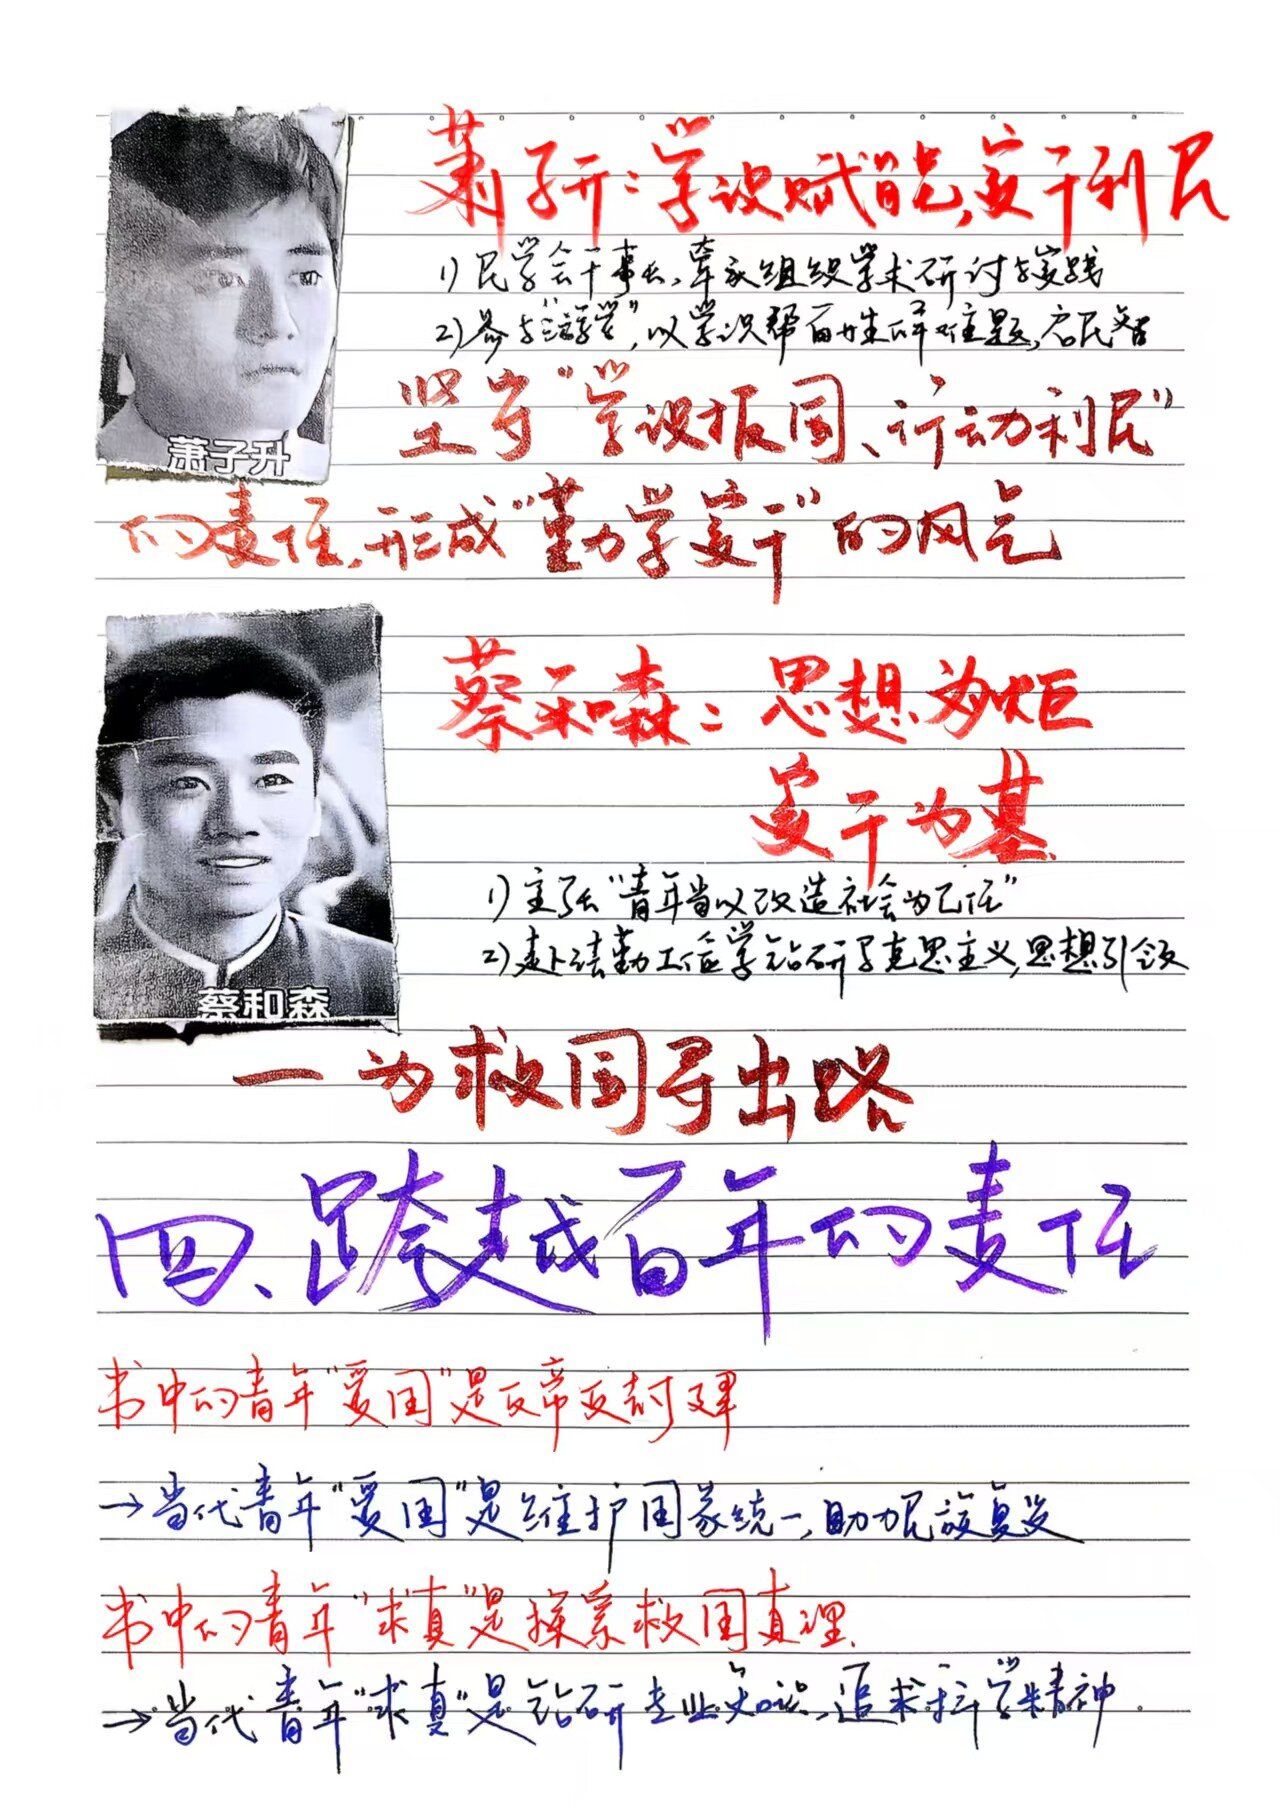 萧子升：学识赋能，实干利民
1）民学会干事长，牵头组织学术研讨与实践
2）参与“游学”，以学识帮百姓解难题，启民智
萧子升
坚守“学识报国、行动利民”
的责任，形成“勤学实干”的风气
蔡和森：思想为炬
实干为基
1）主张“青年当以改造社会为己任”
2）赴法勤工俭学钻研马克思主义，思想引领
蔡和森
一为救国寻出路
四、跨越百年的责任
书中的青年“爱国”是反帝反封建
→当代青年“爱国”是维护国家统一，助力民族复兴
书中的青年“求真”是探索救国真理．
→当代青年“求真”是钻研专业知识，追求科学精神．